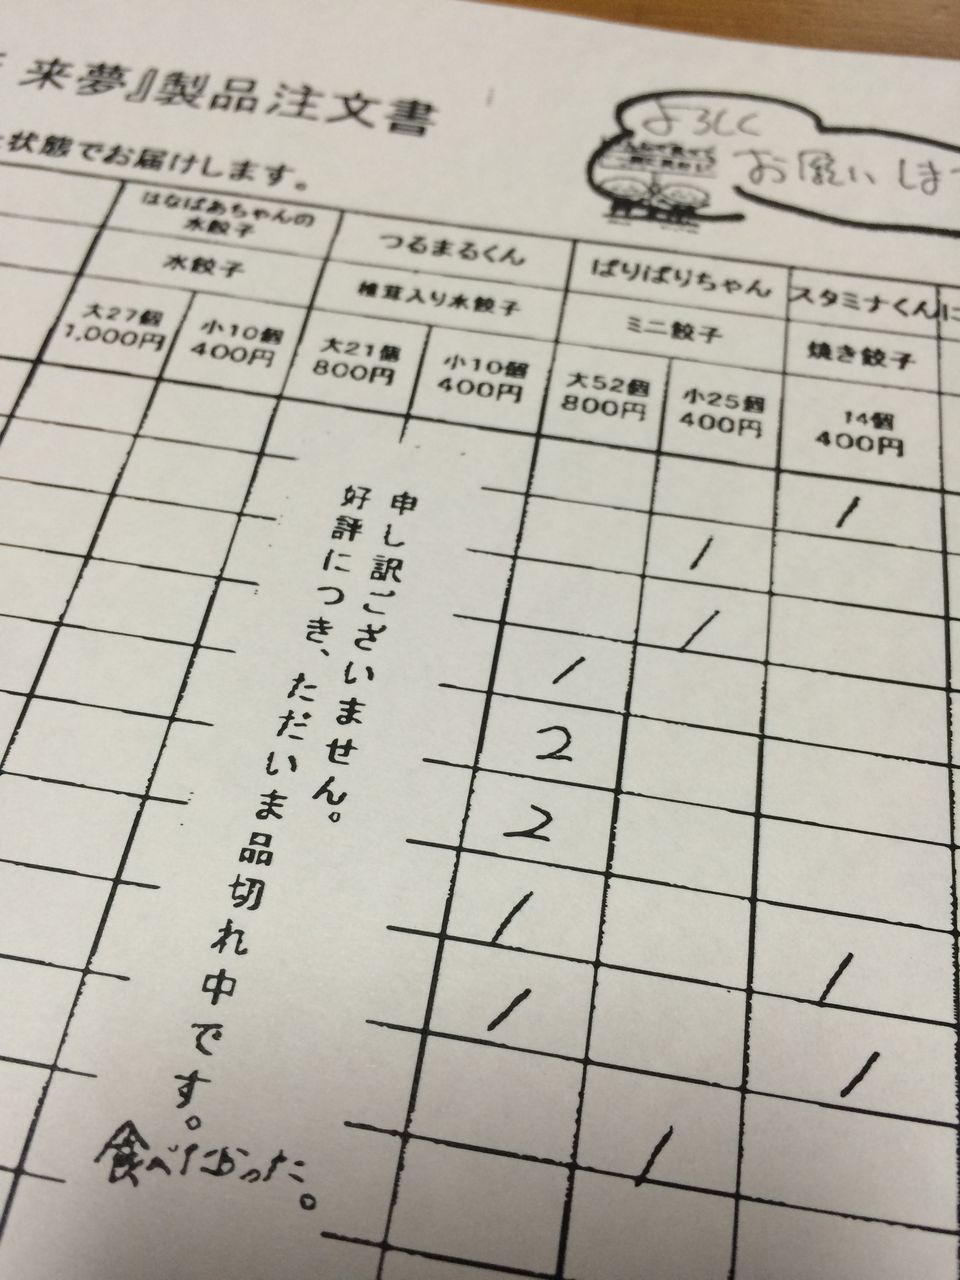 来夢』製品注文書
状態でお届けします。
よろしく
お願いしま
はなばあちゃんの
水餃子
つるまるくん
ぱりぱりちゃん
スタミナくん
に
水餃子
椎茸入り水餃子
ミニ餃子
焼き餃子
大27個
1,000円
小10個
400円
大21個
800円
小10個
400円
大52個
800円
小25個
400円
14個
400円
申し訳ございません。
好評につき、ただいま品切れ中です。
食べたかった。
1
1
1
1
2
2
1
1
1
1
1